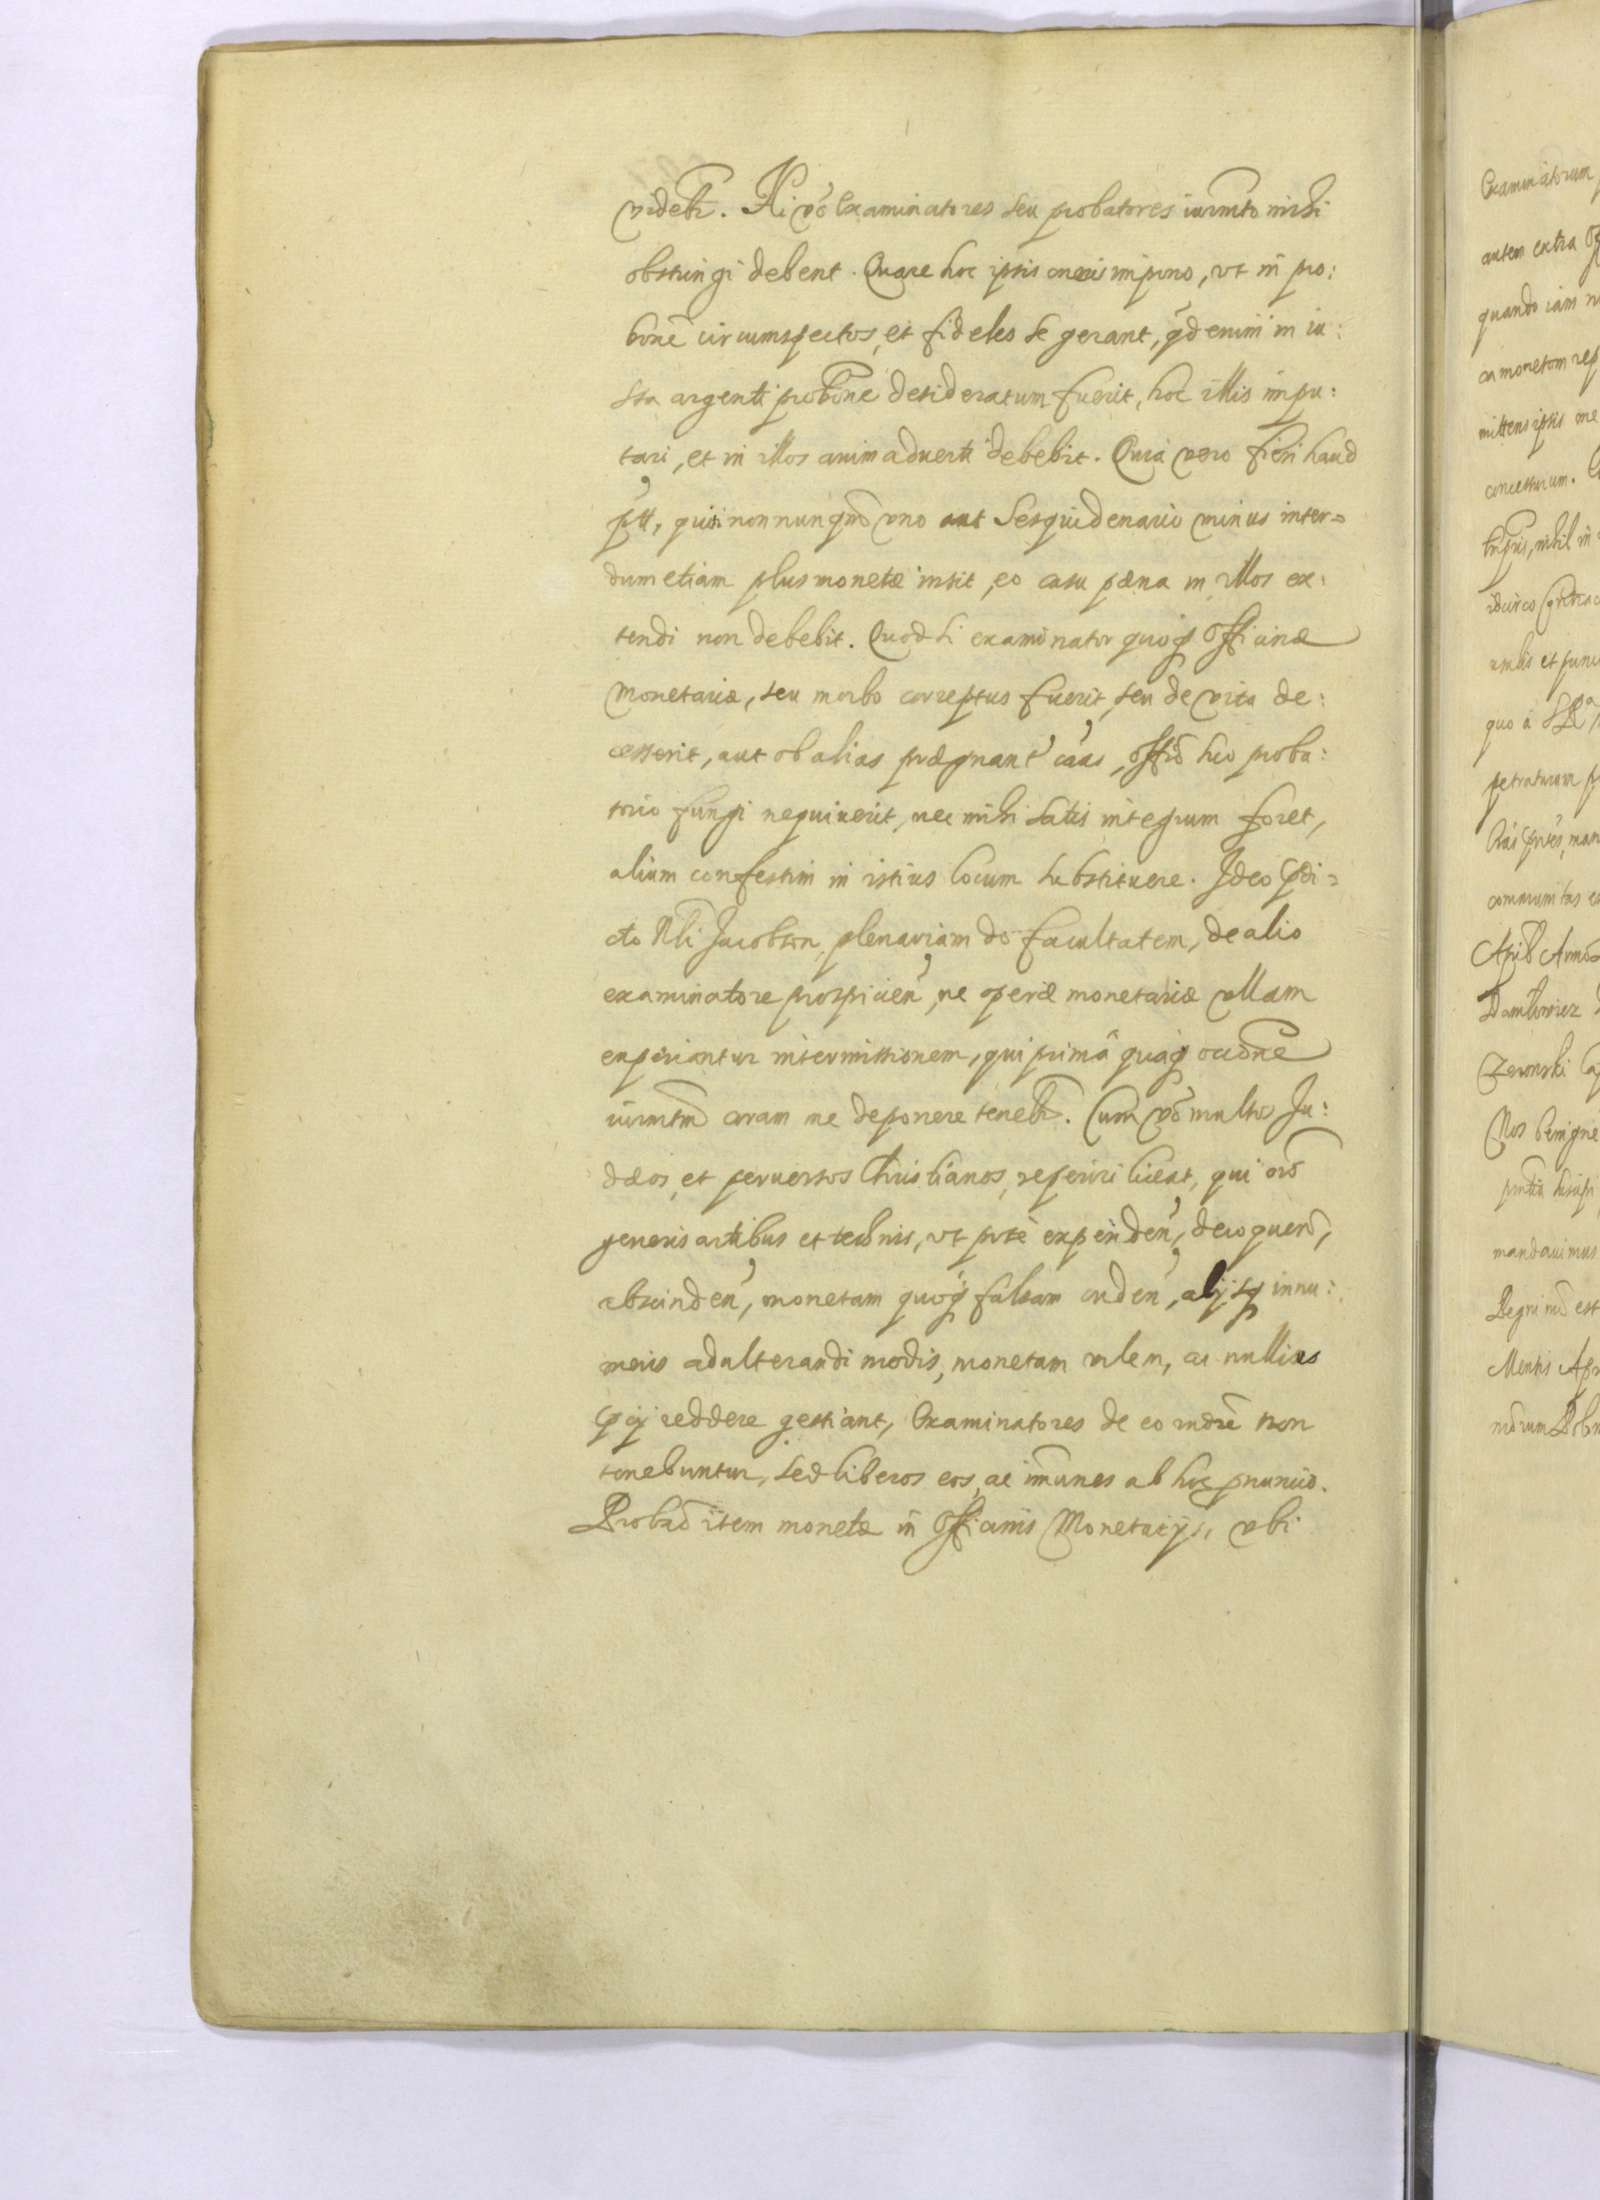 videbr̃. Hi võ Examinatores seu probatores iurm̃to mihi
obstringi debent. Quare hoc ipsis oneris impono, vt in pro:
bonẽ circumspectos, et fideles se gerant, q̃d enim in iu:
sta argenti probõne desideratum fuerit, hoc illis impu:
tari, et in illos animaduerti debebit. Quia vero fieri haud
pt̃t, quin nonnunqm̃ vno aut Sesquidenario minus inter=
dum etiam plus monetæ insit, eo casu pæna in illos ex:
tendi non debebit. Quod si examinator quoq̃ Officinæ
Monetariæ, seu morbo correptus fuerit, seu de vita de:
cesserit, aut ob alias prægnant' cãas, offĩo hoc proba:
torio fungi nequiuerit, nec mihi satis integrum foret,
alium confestim in istius locum substituere. Ideo p̃di=
cto Nli Jacobson, plenariam do facultatem, de alio
examinatore prospicien', ne operæ monetariæ vllam
experiantur intermissionem, qui primâ quaq̃ occõne
iurmtm̃ coram me deponere tenebr̃. Cum võ multos Ju:
dæos, et peruersos Christianos, reperiri liceat, qui oĩs
generis artibus et technis, vt puté expenden', decoquen',
abscinden', monetam quoq̃ falsam cuden', alijsq̃ innu:
meris adulterandi modis, monetam vilem, ac nullius
p̃cij reddere gestiant, Examinatores de eo rndrẽ non
tenebuntur, sed liberos eos, ac im̃unes ab hoc pnuncio.
Probaõ item monetæ in Officinis Monetarijs, vbi
Examinatorum
autem extra
quando iam
ca monetam
mittens ipsis me
concessurum.
nihil in
idcirco
et
quo a
petraturum
communitas
April
Nos benigne
mandauimus
Regni est
Mensis Apr